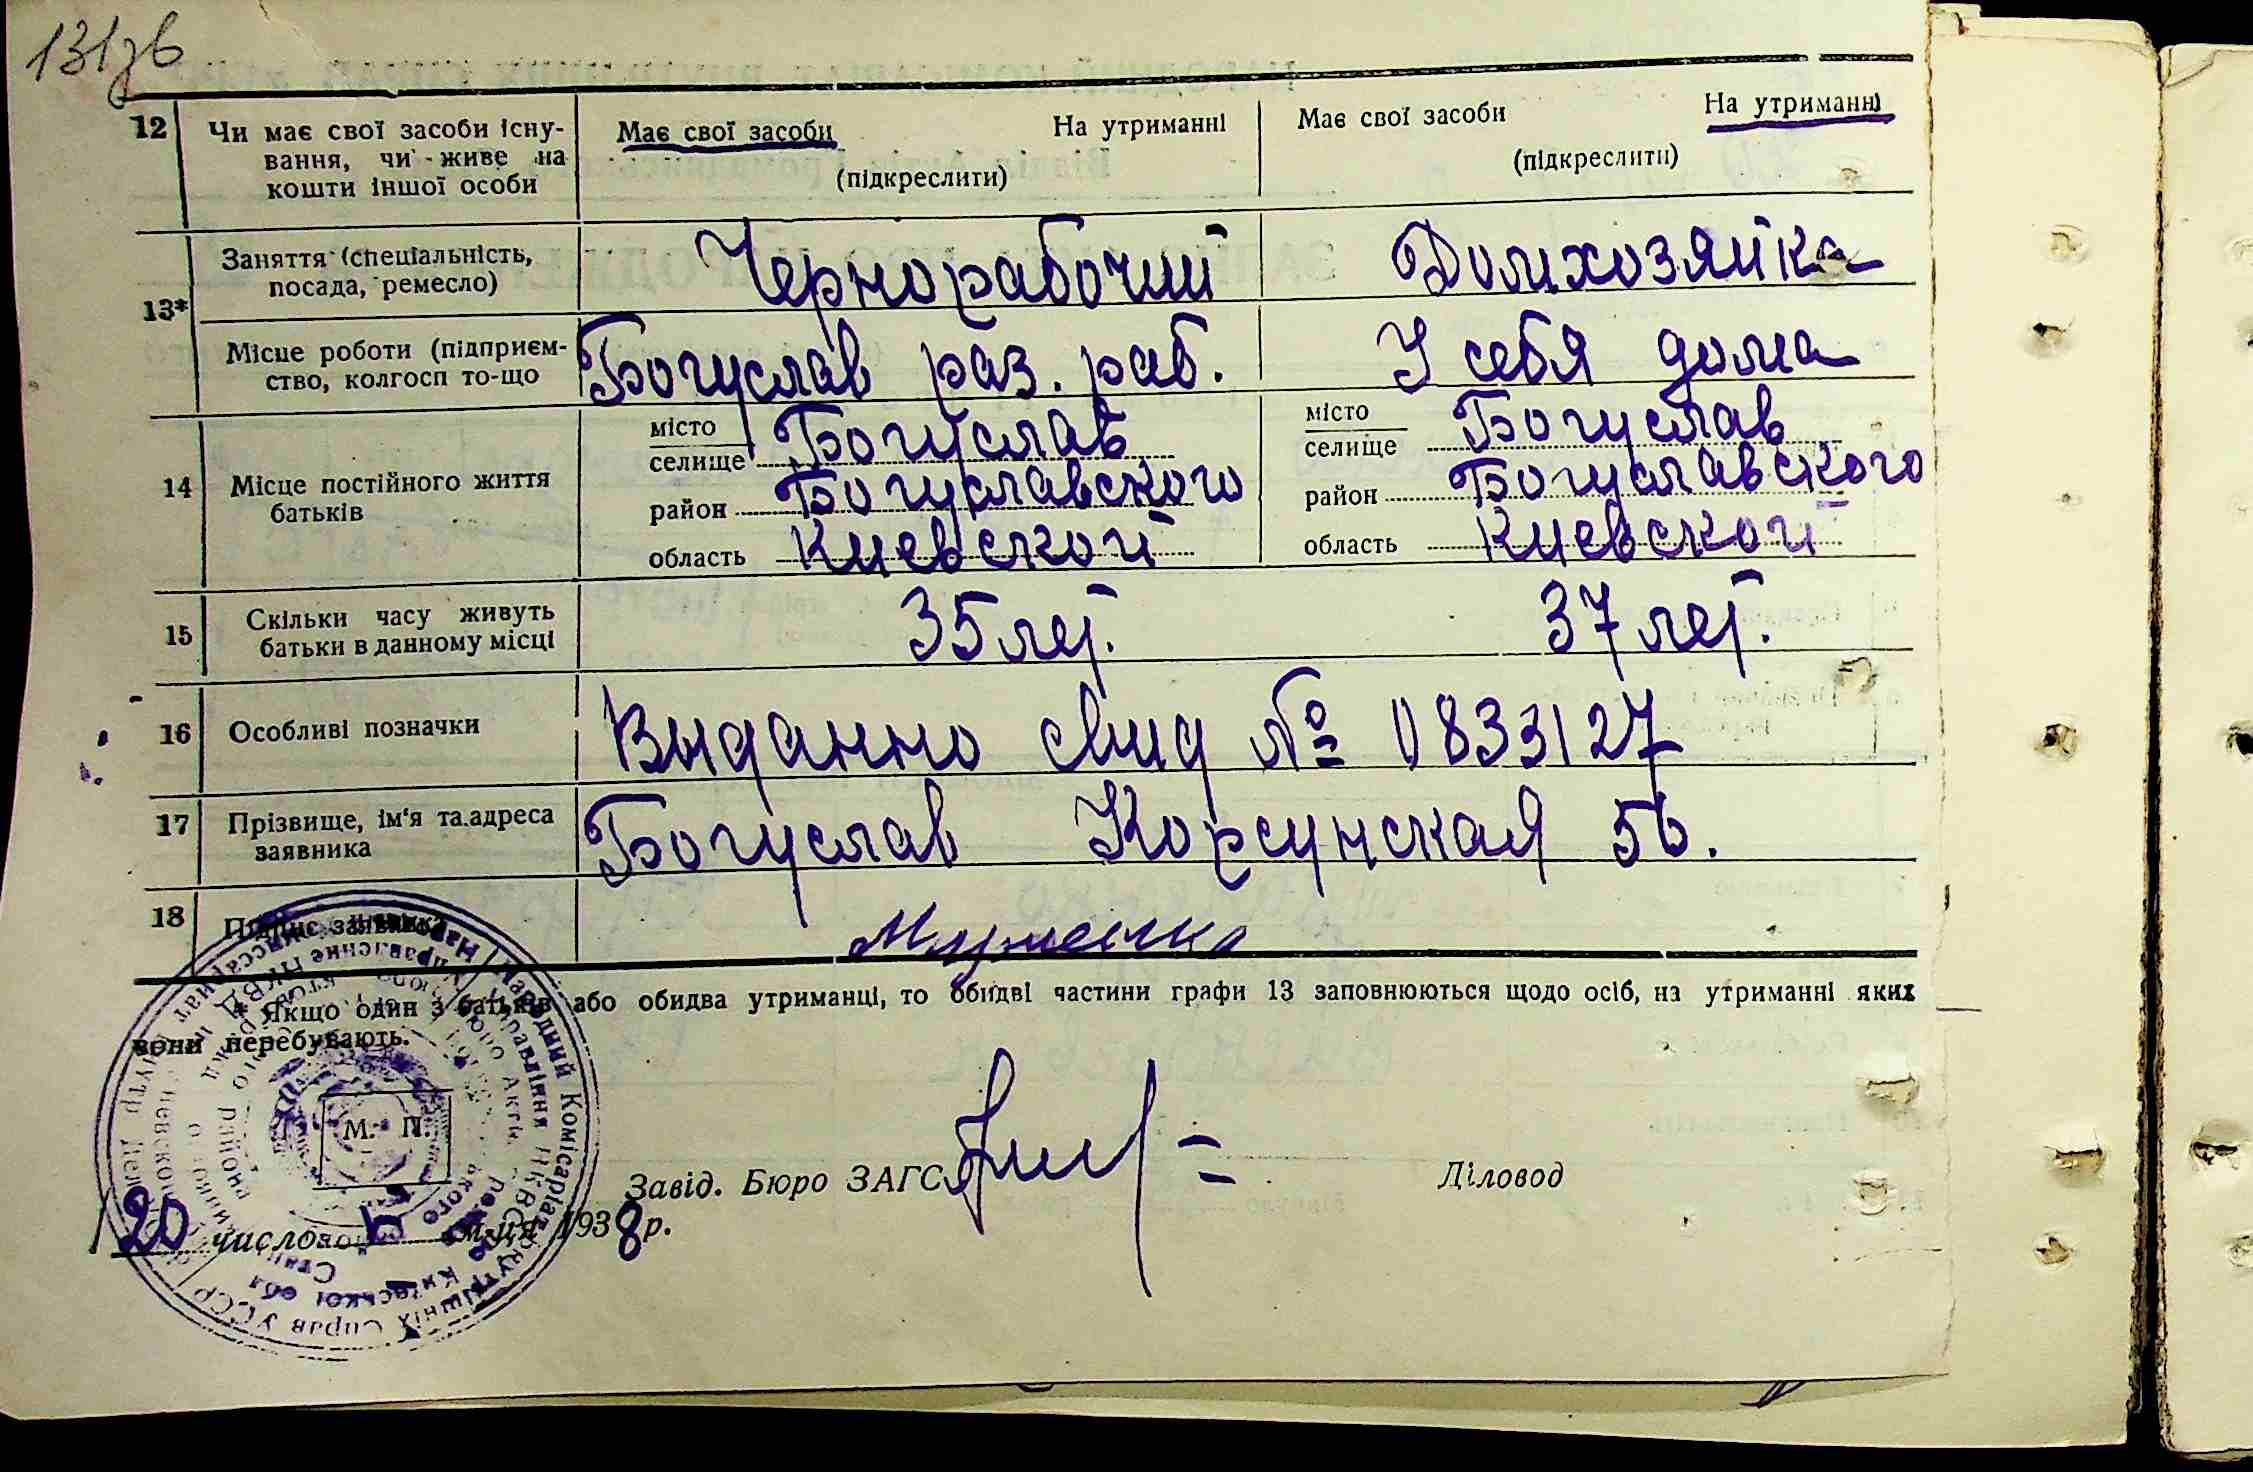 131зв
12 Чи має свої засоби існу-
вання, чи живе на
кошти іншої особи
Має свої засоби На утриманні
(підкреслити)
Має свої засоби На утриманні
(підкреслити)
13*
Заняття (спеціальність,
посада, ремесло)
Чернорабочий
Домхозяйка
Місце роботи (підприєм-
ство, колгосп то-що
Богуслав раз. раб.
У себя дома
14 Місце постійного життя
батьків
місто
селище Богуслав
район Богуславского
область Киевской
місто
селище Богуслав
район Богуславского
область Киевской
15 Скільки часу живуть
батьки в данному місці
35 лет.
37 лет.
16 Особливі позначки
Выданно свид № 0833127
17 Прізвище, ім'я та адреса
заявника
Богуслав Корсунская 56.
18 Підпис заявника
* Якщо один з батьків або обидва утриманці, то обидві частини графи 13 заповнюються щодо осіб, на утриманні яких
вони перебувають.
М. П.
Завід. Бюро ЗАГС
Діловод
20 число м-ця 1938 р.
Народний Комісаріат Внутрішніх Справ УССР